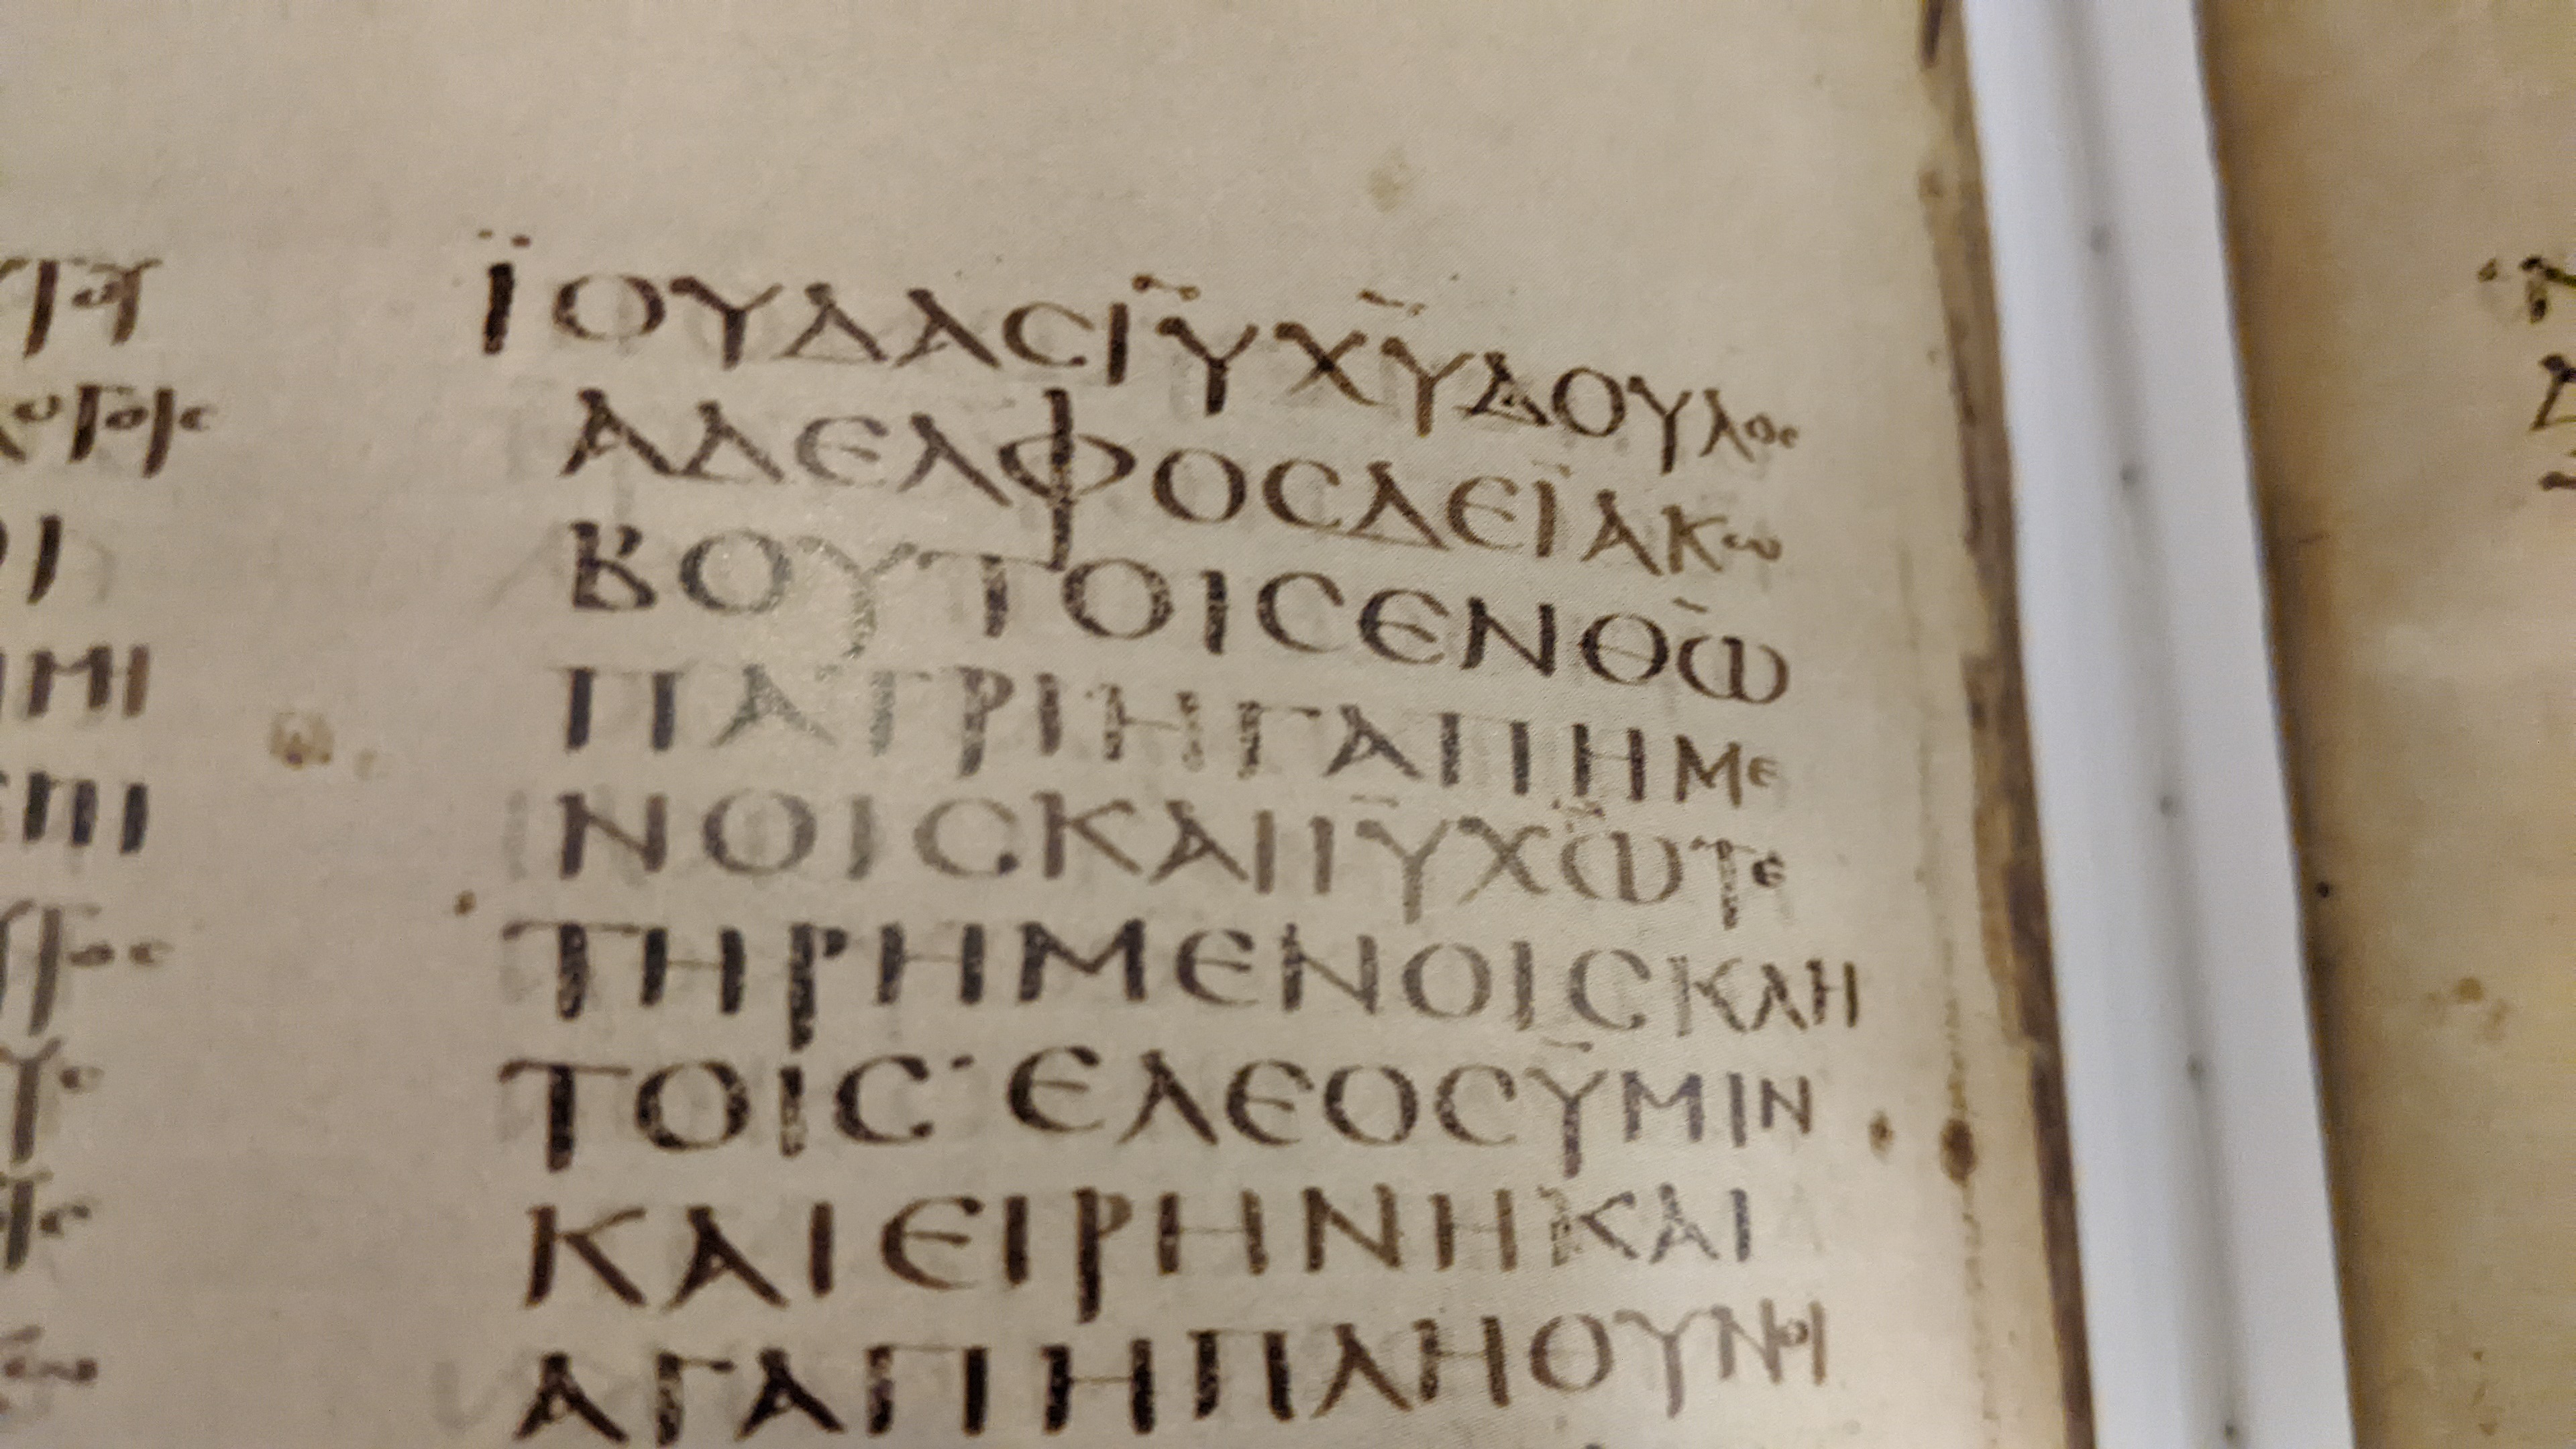 ΪΟΥΔΑCΙ̅Υ̅Χ̅Υ̅ΔΟΥΛΟC
ΑΔΕΛΦΟCΔΕΪΑΚΩ
ΒΟΥΤΟΙCΕΝΘ̅Ω̅
ΠΑΤΡΙΗΓΑΠΗΜΕ
ΝΟΙCΚΑΙΙ̅Υ̅Χ̅Ω̅ΤΕ
ΤΗΡΗΜΕΝΟΙCΚΛΗ
ΤΟΙC·ΕΛΕΟCΫΜΙΝ
ΚΑΙΕΙΡΗΝΗΚΑΙ
ΑΓΑΠΗΠΛΗΘΥΝΘΙ